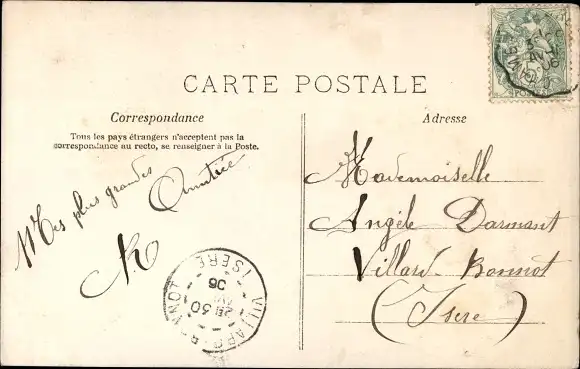 CARTE POSTALE
Correspondance
Tous les pays étrangers n'acceptent pas la
correspondance au recto, se renseigner à la Poste.
Mes plus grandes
Amitiés
Adresse
Mademoiselle
Angèle Darmant
Villard-Bonnot
(Isère)
VILLARD-BONNOT
30
06
ISÈRE